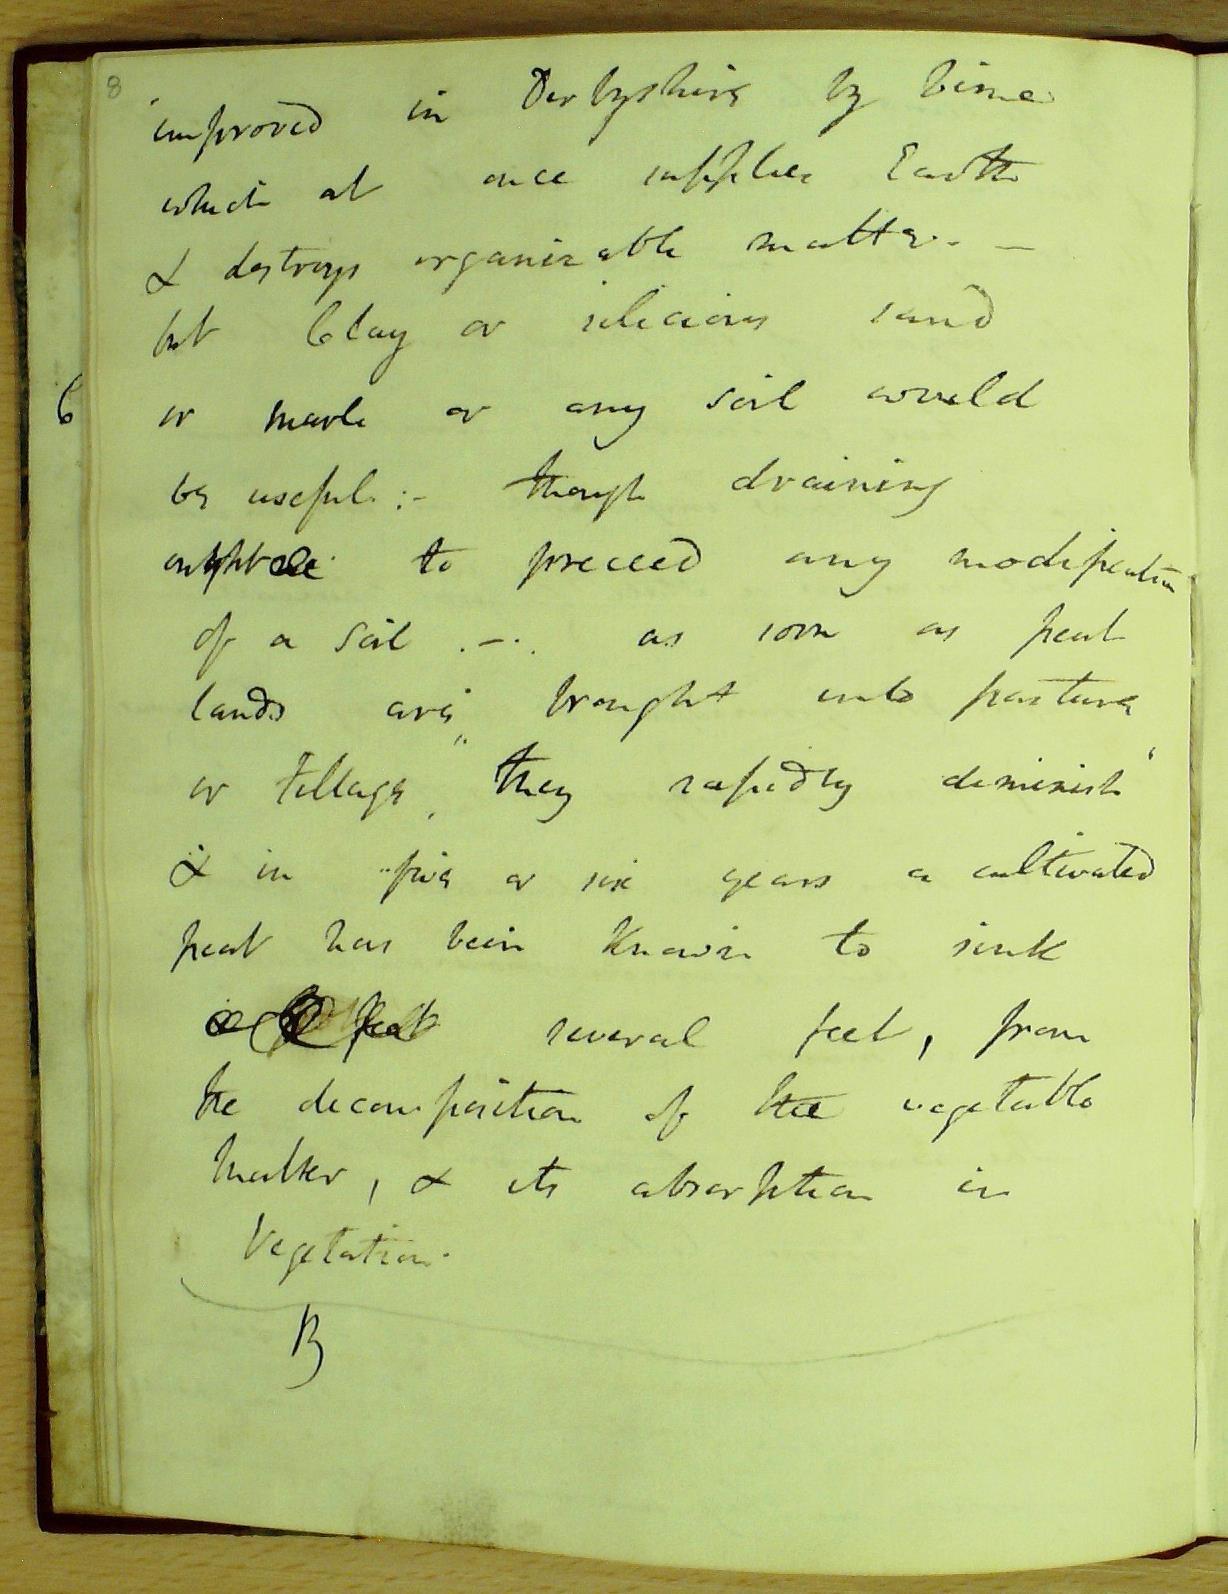 8
improved in Derbyshire by Lime
which at once supplies Earth
& destroys organizable matter. —
but Clay or silicious sand
6
or marle or any soil would
be useful :- though draining
ought to preceed any modification
of a soil .-. as soon as peat
lands are brought into pasture
or tillage, "they rapidly diminish"
& in five or six years a cultivated
peat has been known to sink
several feet, from
the decomposition of the vegetable
matter, & its absorption in
Vegetation.
B